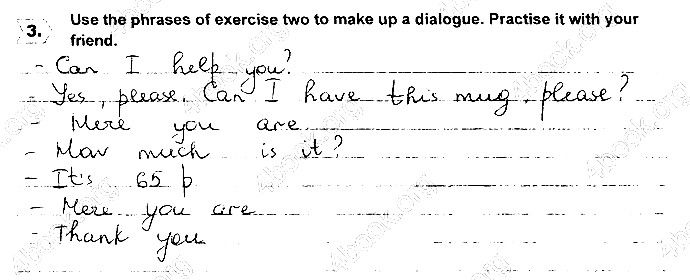 3. Use the phrases of exercise two to make up a dialogue. Practise it with your
friend.
- Can I help you?
- Yes, please. Can I have this mug, please?
- Here you are
- How much is it?
- It's 65 p
- Here you are
- Thank you
4book.org